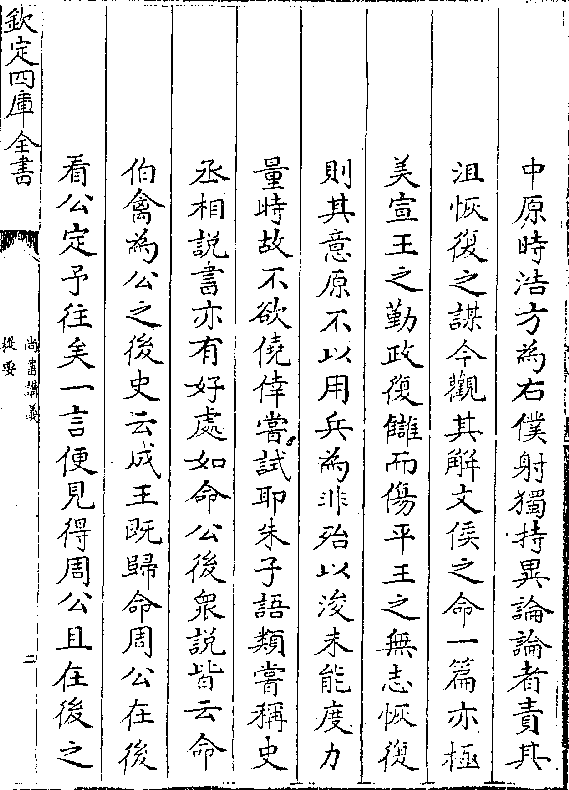 中原時浩方為右僕射獨持異論論者責其
沮恢復之謀今觀其解文侯之命一篇亦極
美宣王之勤政復讎而傷平王之無志恢復
則其意原不以用兵為非殆以浚未能度力
量時故不欲僥倖嘗試耶朱子語類嘗稱史
丞相説書亦有好處如命公後衆説皆云命
伯禽為公之後史云成王既歸命周公在後
看公定予往矣一言便見得周公且在後之
欽定四庫全書
尚書講義
提要
二